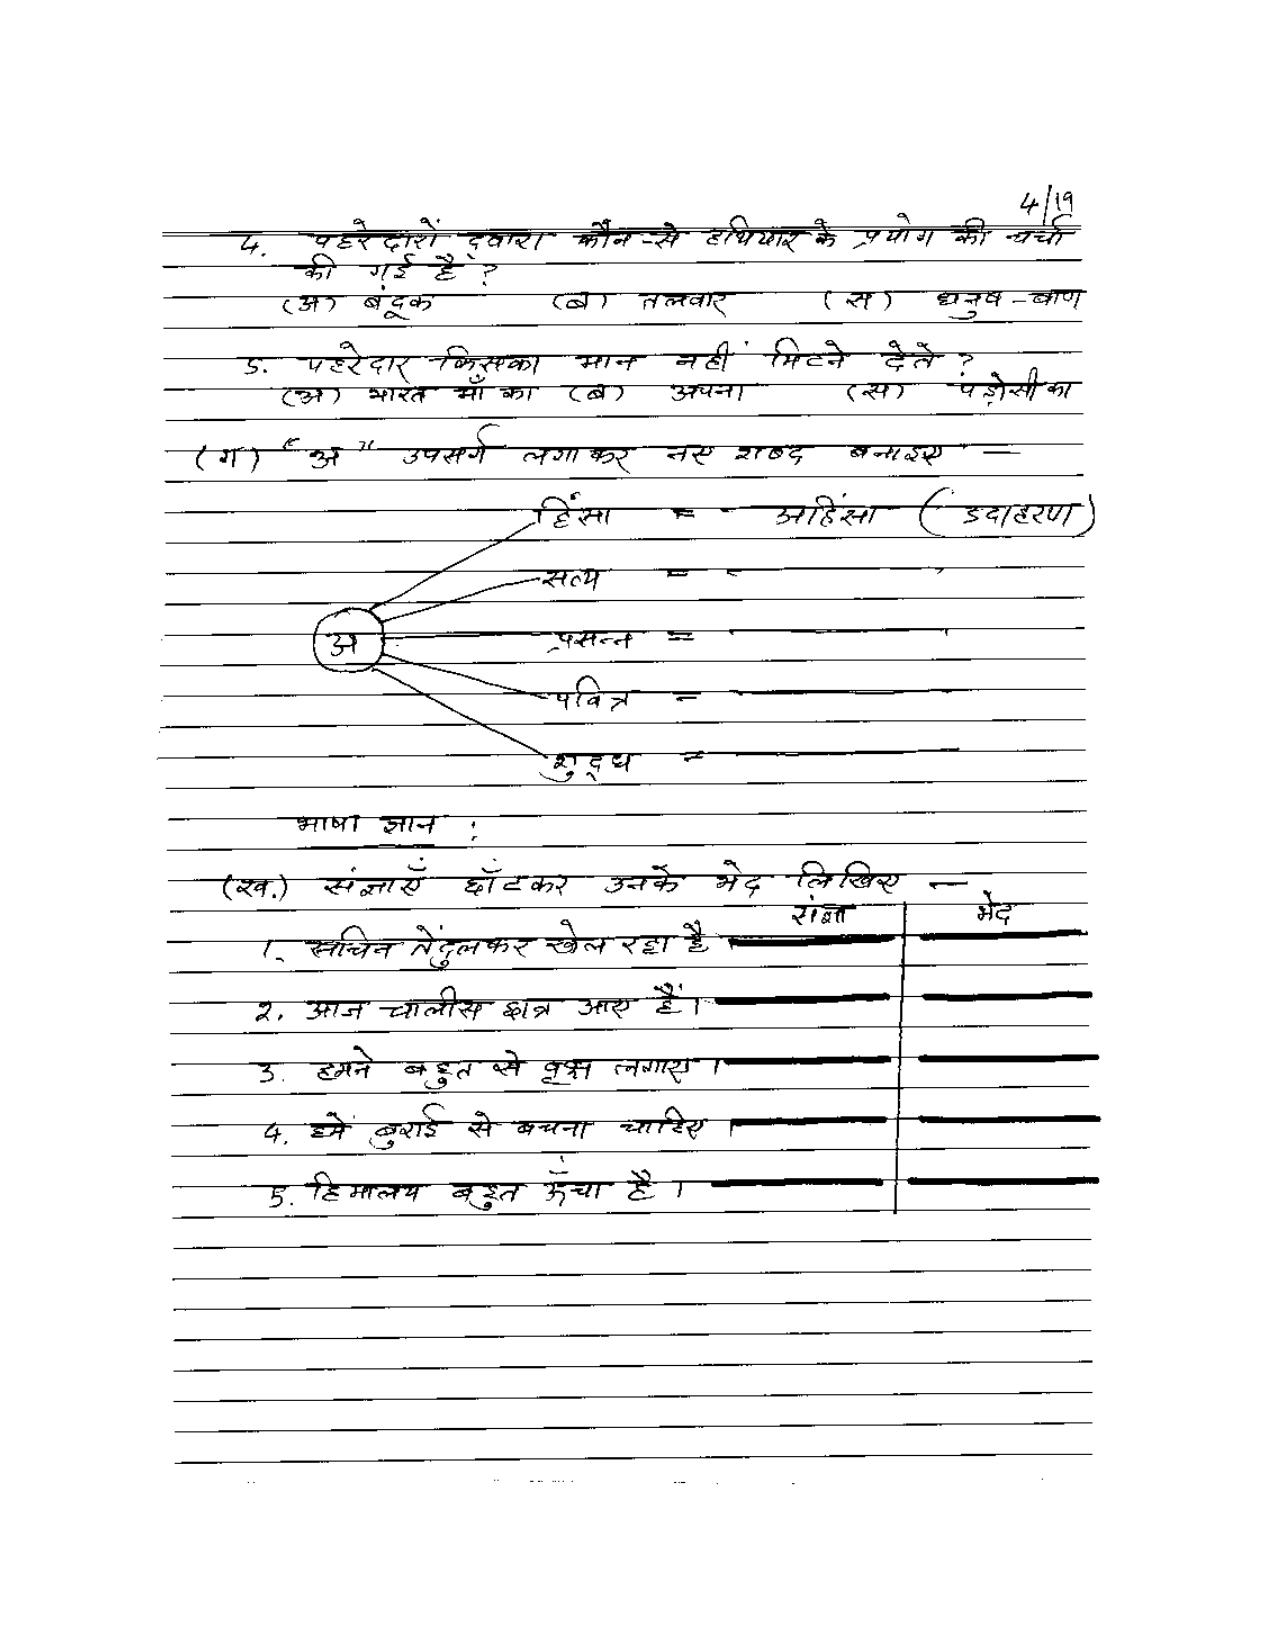 4/19
4. पहरेदारों द्वारा कौन-से हथियार के प्रयोग की चर्चा
की गई है ?
(अ) बंदूक (ब) तलवार (स) धनुष-बाण
5. पहरेदार किसका मान नहीं मिटने देते ?
(अ) भारत माँ का (ब) अपना (स) पड़ोसी का
(ग) "अ" उपसर्ग लगाकर नए शब्द बनाइए —
हिंसा = अहिंसा (उदाहरण)
सत्य =
अ प्रसन्न =
पवित्र =
शुद्ध =
भाषा ज्ञान :
(ख.) संज्ञाएँ छाँटकर उनके भेद लिखिए —
संज्ञा भेद
1. सचिन तेंदुलकर खेल रहा है
२. आज चालीस छात्र आए हैं।
3. हमने बहुत से वृक्ष लगाए।
4. हमें बुराई से बचना चाहिए।
5. हिमालय बहुत ऊँचा है।